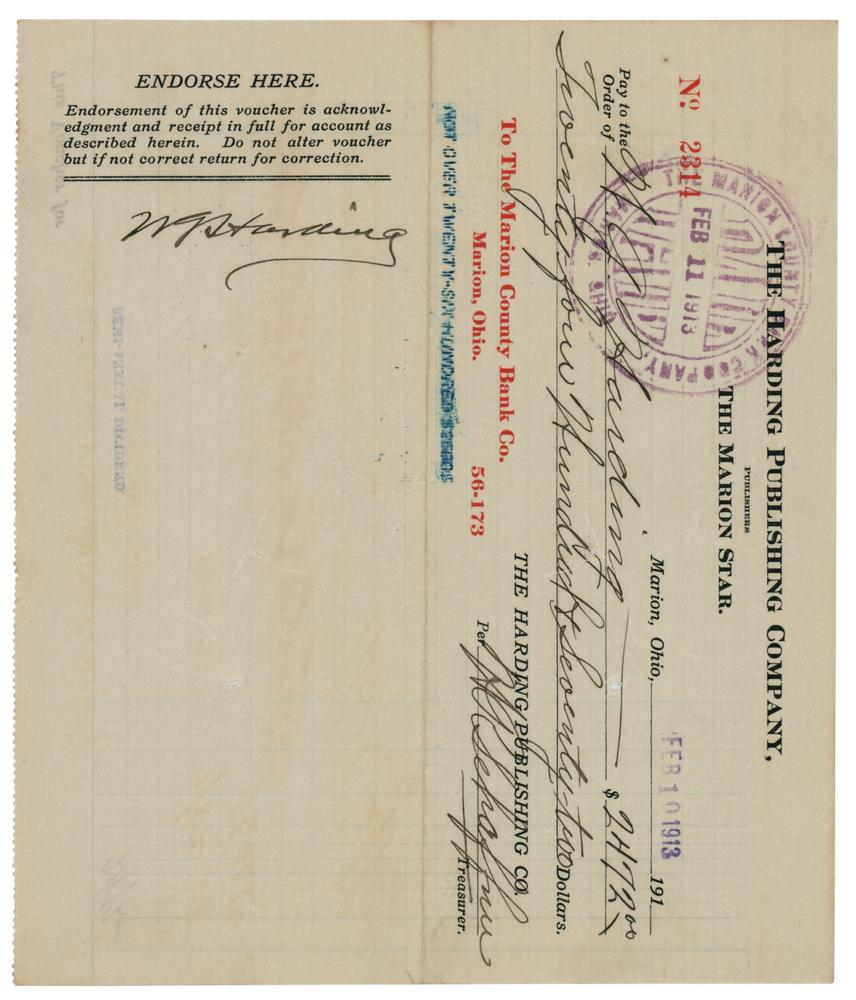 ENDORSE HERE.
Endorsement of this voucher is acknowl-
edgment and receipt in full for account as
described herein. Do not alter voucher
but if not correct return for correction.
W G Harding
THE HARDING PUBLISHING COMPANY,
PUBLISHERS
THE MARION STAR.
No 2314
THE MARION COUNTY BANK COMPANY,
PAID
FEB 11 1913
MARION, OHIO
Marion, Ohio, FEB 10 1913 191
Pay to the
Order of W. G. Harding $ 2472 00
Twenty four Hundred & Seventy-two Dollars.
To The Marion County Bank Co.
Marion, Ohio. 56-173
THE HARDING PUBLISHING CO.
Per Treasurer.
NOT OVER TWENTY-SIX HUNDRED $2600$
SEMI-ANNUAL DIVIDEND
This Voucher for